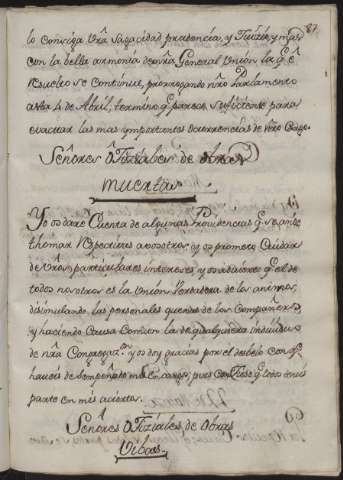 87
lo consiga Vrã Sagacidad prudencia, y Juizio y mas
con la bella armonia de vrã General Union la q̃ ẽ
Resuelbo se Continue, prorrogando nrõ Parlamento
asta 4 de Abril, termino q̃ parece suficiente para
evacuar las mas importantes ocurrencias de vrõ Cargo.
Señores Ofiziales de obras
muertas.
Yo os daré Cuenta de algunas Providencias q̃ se an de
thomar Respectibas a vosotros: y os prometo Cuidar
de vrõs particulares intereses, y
todos nosotros es la Union Verdadera de los animos,
disimulando las personales quexas de los Compañeros
y haciendo Causa Comun la de qualquiera individuo
de nrã Congregaz.ⁿ y os doy gracias por el desbelo con q̃
haveis desempeñado mi Encargo; pues Confieso q̃ todos teneis
parte en mis aciertos.
Señores Ofiziales de Obras
Vibas.